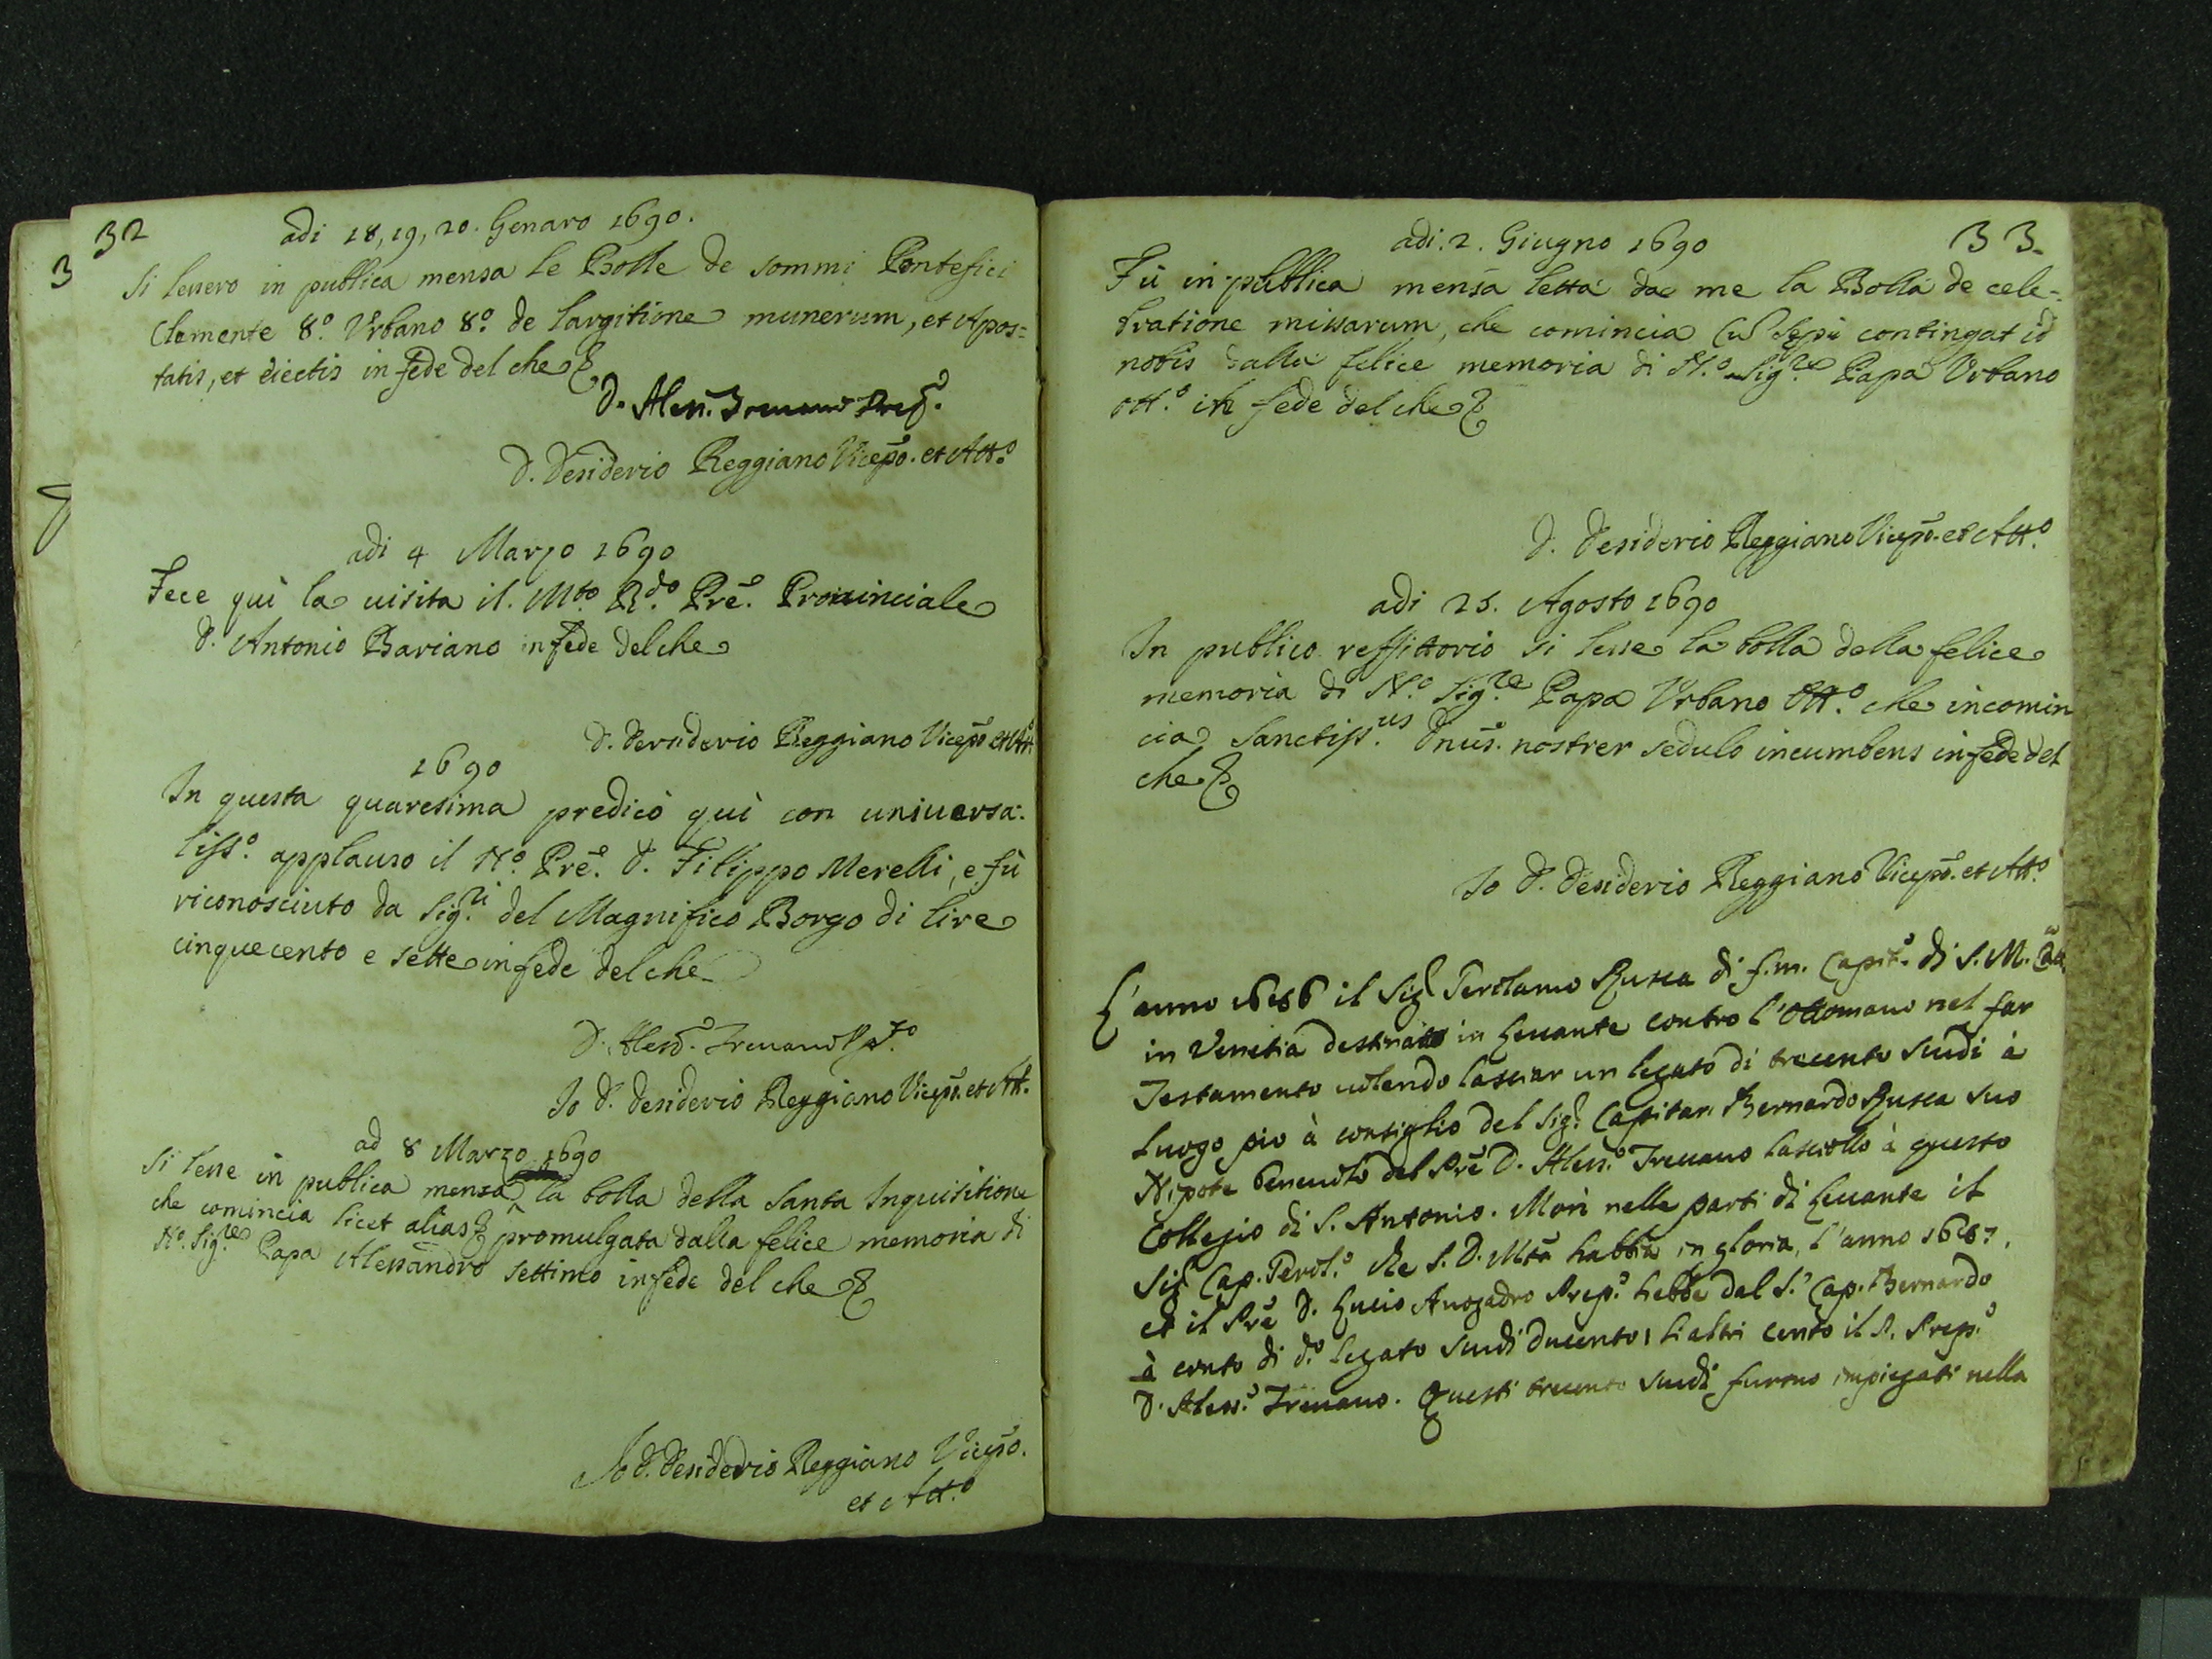 32
adi 18, 19, 20. Genaro 1690.
Si lessero in publica mensa le Bolle de sommi Pontefici
Clemente 8.º Vrbano 8.º de largitione munerum, et Apos=
tatis, et eiectis in fede del che &
D. Aless. Trevano Prep.º
D. Desiderio Reggiano Vicepº. et Att.º
adi 4 Marzo 1690
Fece quì la uisita il Mto. Rdo. Pre. Prouinciale
D. Antonio Bariano in fede del che
D. Desiderio Reggiano Vicepº et Att.
1690
In questa quaresima predicò quì con uniuersa:
liss.º applauso il N.º Pre. D. Filippo Merelli, e fù
riconosciuto da Sig.ri del Magnifico Borgo di lire
cinquecento e sette in fede del che
D. Aless. Trevano
Io D. Desiderio Reggiano Vicepº. et Att.
ad 8 Marzo 1690
Si lesse in publica mensa la bolla della Santa Inquisitione
che comincia licet alias & promulgata dalla felice memoria di
N.º Sig.re Papa Alessandro settimo in fede del che &
Io D. Desiderio Reggiano Vicepº.
et Att.º
33.
adi. 2. Giugno 1690
Fù in publica mensa letta da me la Bolla de cele=
bratione missarum, che comincia Cu sepè contingat id
nobis dalla felice memoria di N.º Sig.re Papa Vrbano
ott.º in fede del che &
D. Desiderio Reggiano Vicepº. et Att.º
adi 25. Agosto 1690
In publico reffittorio si lesse la bolla della felice
memoria di N.º Sig.re Papa Vrbano Ott.º che incomin
cia Sanctiss.us Dnus. noster sedulo incumbens in fede del
che &
Io D. Desiderio Reggiano Vicepº. et Att.º
L'anno 1686 il Sig.r Gerolamo Rusca di f.m. Capit.º di S. M. Catt.
in Venetia destinato in Leuante contro l'Ottomano nel far
Testamento uolendo lasciar un legato di trecento scudi à
luogo pio à consiglio del Sig.r Capitan Bernardo Rusca suo
Nipote beneuolo del Pre D. Aless.º Trevano lasciollo à questo
Collegio di S. Antonio. Morì nelle parti di Leuante il
Sig.r Cap. Gerol.º che S. D. Mtà habbia in gloria, l'anno 1687.
et il Pre D. Lucio Auogadro Prep.º hebbe dal S.r Cap. Bernardo
à conto di d.º legato scudi ducento, li altri cento il P. Prep.º
D. Aless.º Trevano. Questi trecento scudi furono impiegati nella